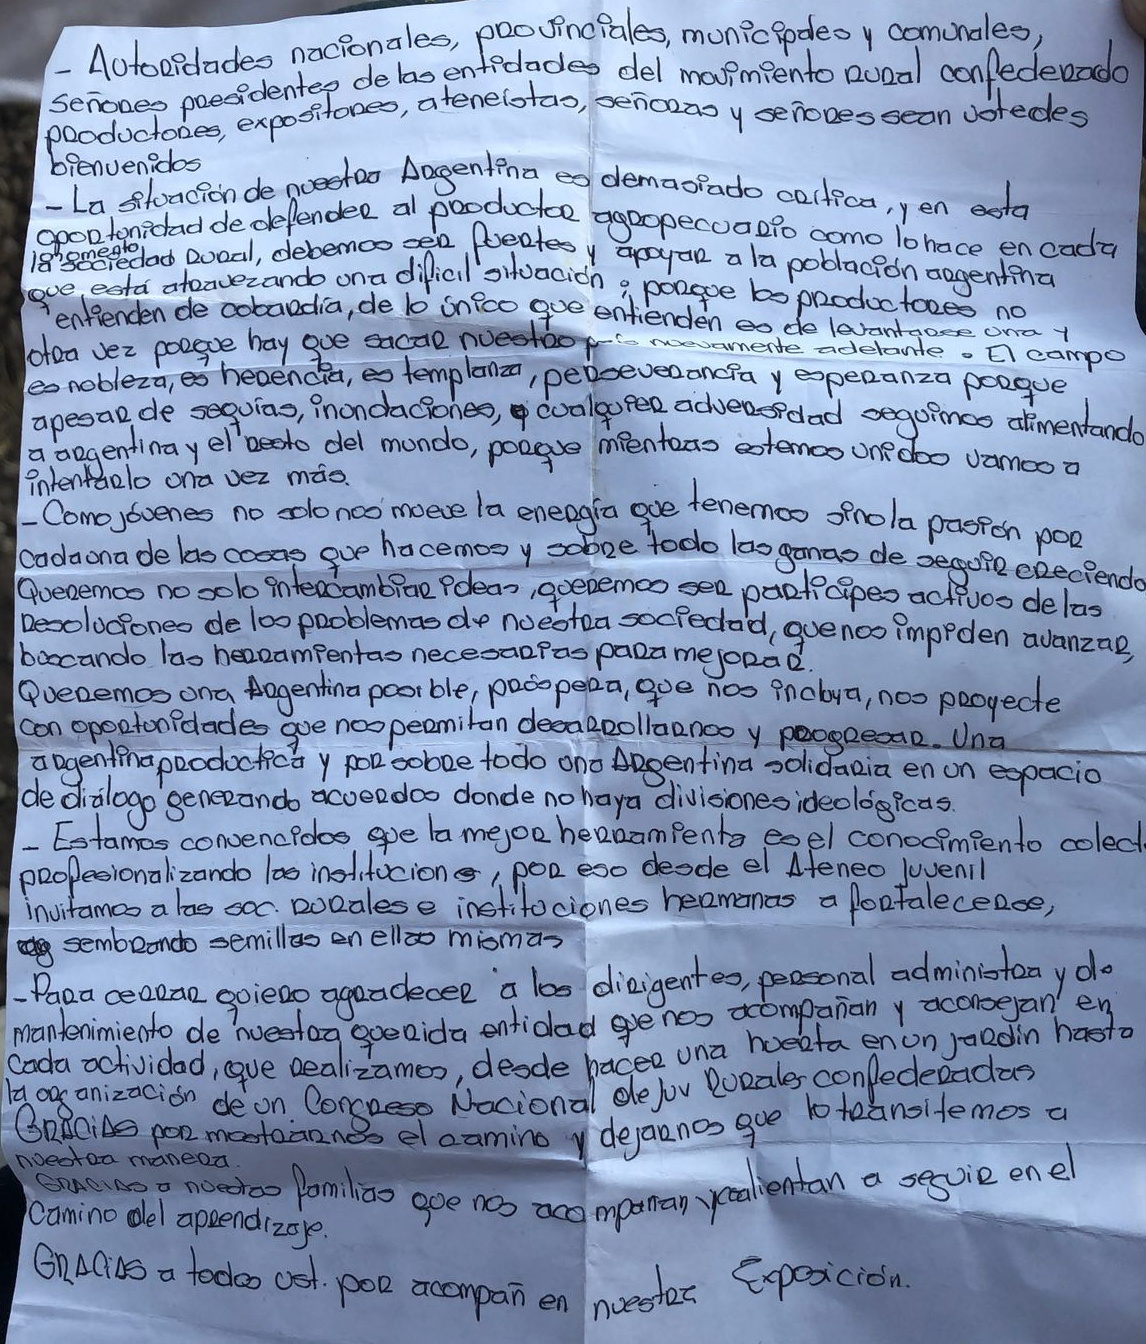 - Autoridades nacionales, provinciales, municipales y comunales,
señores presidentes de las entidades del movimiento rural confederado
productores, expositores, ateneistas, señoras y señores sean ustedes
bienvenidos
- La situación de nuestra Argentina es demasiado crítica, y en esta
oportunidad de defender al productor agropecuario como lo hace en cada
momento
la sociedad rural, debemos ser fuertes y apoyar a la población argentina
que está atravezando una dificil situación; porque los productores no
entienden de cobardía, de lo único que entienden es de levantarse una y
otra vez porque hay que sacar nuestro país nuevamente adelante. El campo
es nobleza, es herencia, es templanza, perseverancia y esperanza porque
apesar de sequías, inundaciones, cualquier adversidad seguimos alimentando
a argentina y el resto del mundo, porque mientras estemos unidos vamos a
intentarlo una vez más.
- Como jóvenes no solo nos mueve la energía que tenemos sino la pasión por
cada una de las cosas que hacemos y sobre todo las ganas de seguir creciendo
Queremos no solo intercambiar ideas, queremos ser partícipes activos de las
resoluciones de los problemas de nuestra sociedad, que nos impiden avanzar,
buscando las herramientas necesarias para mejorar.
Queremos una Argentina posible, próspera, que nos incluya, nos proyecte
con oportunidades que nos permitan desarrollarnos y progresar. Una
argentina productica y por sobre todo una Argentina solidaria en un espacio
de diálogo generando acuerdos donde no haya divisiones ideológicas.
- Estamos convencidos que la mejor herramienta es el conocimiento colect
profesionalizando las instituciones, por eso desde el Ateneo Juvenil
invitamos a las soc. rurales e instituciones hermanas a fortalecerse,
sembrando semillas en ellas mismas
- Para cerrar quiero agradecer a los dirigentes, personal administra y de
mantenimiento de nuestra querida entidad que nos acompañan y aconsejan en
cada actividad, que realizamos, desde hacer una huerta en un jardín hasta
la organización de un Congreso Nacional de juv rurales confederadas
GRACIAS por mostrarnos el camino y dejarnos que lo transitemos a
nuestra manera.
GRACIAS a nuestras familias que nos acompañan y alientan a seguir en el
camino del aprendizaje.
GRACIAS a todos ust. por acompañ en nuestra Exposición.